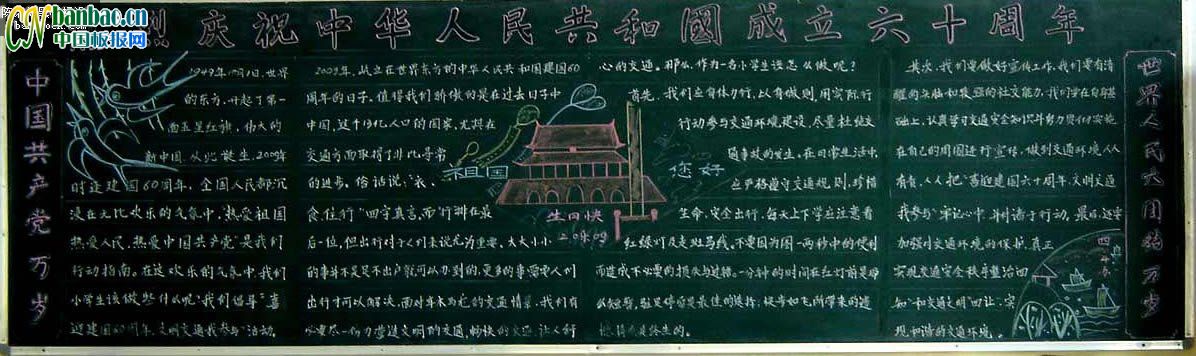 烈庆祝中华人民共和國成立六十周年
CN banbac.cn
中国板报网
中国共产党万岁
1949年10月1日,世界
的东方,升起了第一
面五星红旗,伟大的
新中国从此诞生,2009年
时逢建国60周年,全国人民都沉
浸在无比欢乐的气氛中,“热爱祖国
热爱人民,热爱中国共产党”是我们
行动指南。在这欢乐的气氛中,我们
小学生该做些什么呢?我们倡导“喜
迎建国60周年,文明交通我参与”活动。
2009年,屹立在世界东方的中华人民共和国建国60
周年的日子。值得我们骄傲的是在过去日子中
中国,这个13亿人口的国家,尤其在
交通方面取得了非比寻常
的进步。俗话说:“衣、
食、住、行”四字真言,而“行”排在最
后一位,但出行对于人们来说尤为重要,大大小小
的事并不是足不出户就可以办到的,更多的事需要人们
出行才可以解决,面对车水马龙的交通情景,我们有
必要尽一份力营造文明的交通,畅快的交通,让人们
祖国
生日快
2009.09
您好
心的交通。那么,作为一名小学生该怎么做呢?
首先,我们应身体力行,以身做则,用实际行
行动参与交通环境建设,尽量杜绝交
通事故的发生,在日常生活中,
应严格遵守交通规则,珍惜
生命,安全出行,每天上下学应注意看
红绿灯及走斑马线。不要因为图一两秒中的便利
而造成不必要的损失与过错。一分钟的时间在红灯前是那
么短暂,驻足停留是最佳的选择;健步如飞,所带来的遗
憾将是终生的。
其次,我们要做好宣传工作,我们要有清
醒的头脑和较强的社交能力,我们要在自身基
础上,认真学习交通安全知识并努力贯彻实施
在自己的周围进行宣传,做到交通环境人人
有责,人人把“喜迎建国六十周年,文明交通
我参与”牢记心中,并付诸于行动,最后,还要
加强对交通环境的保护,真正
实现交通安全秩序整治四
知”和交通文明“四让”,实
现和谐的交通环境。
世界人民大团结万岁